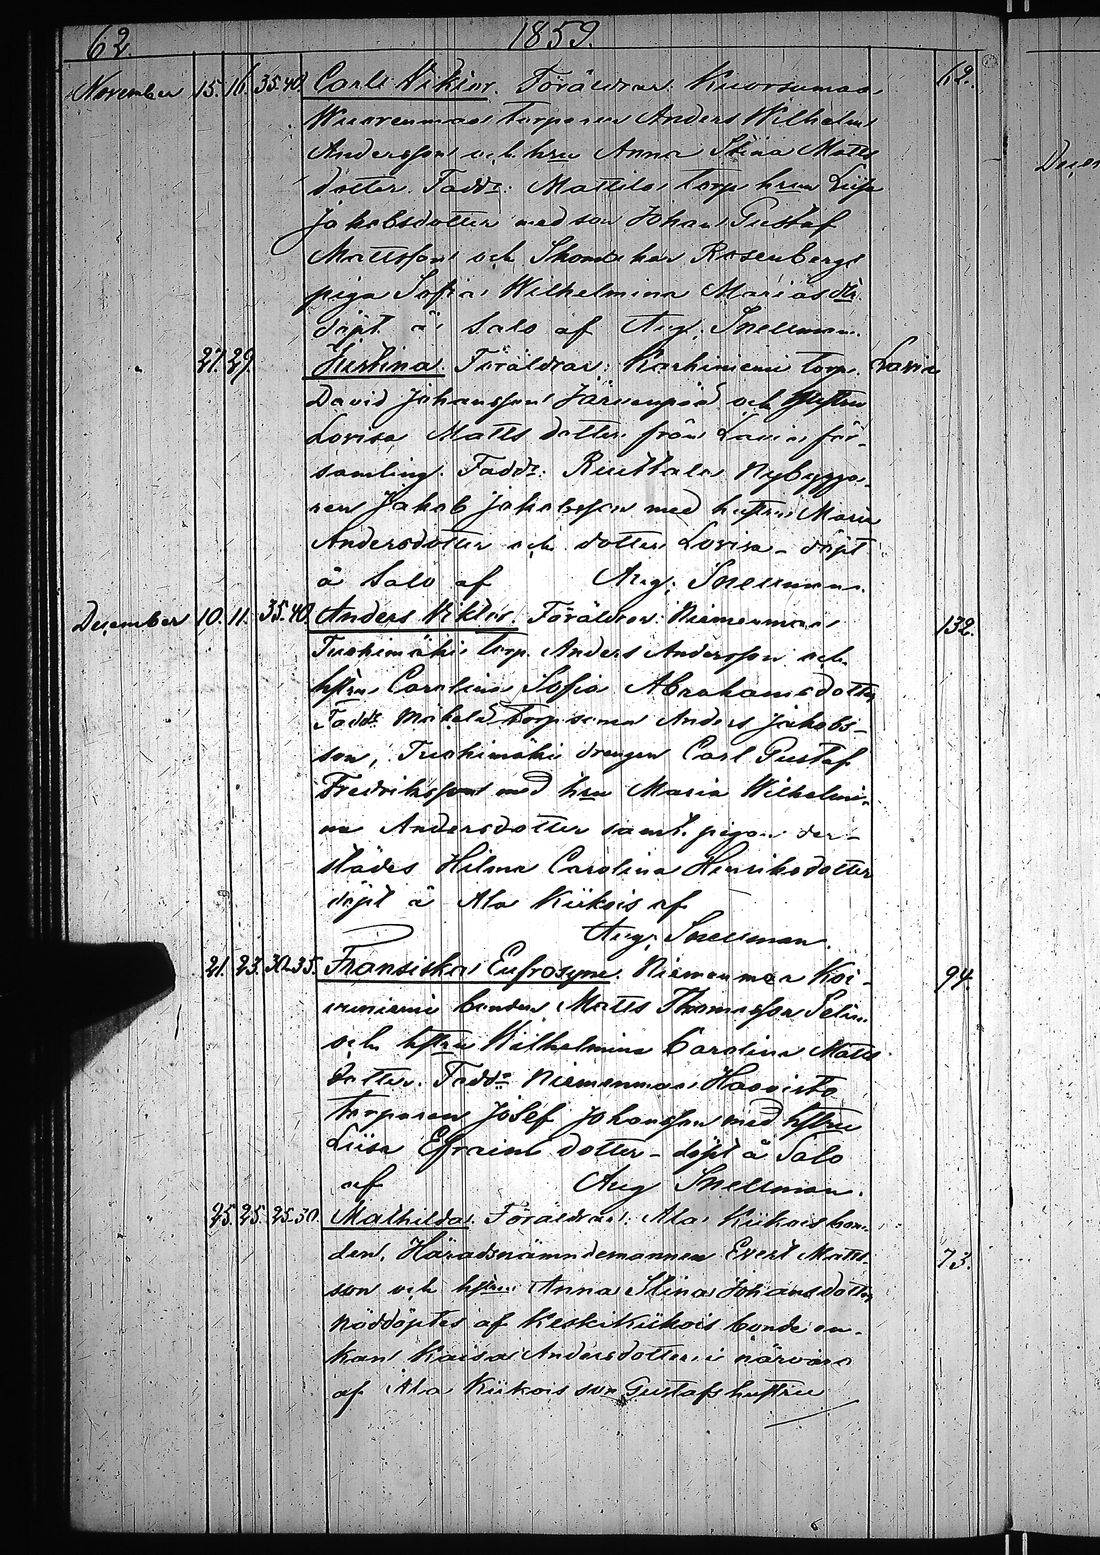 62. 1859.
November 15. 16. 35-40. Carl Viktor. Föräldrar Kuorsumaa 62.
torparen Anders Wilhelm
Andersson och hru Anna Stina Matts
dotter. Fadd: Mattila torp hrun Liisa
Jakobsdotter med son Johan Gustaf
Mattsson och Skomakar Rosenbergs
piga Sofia Wilhelmina Mariasdtr
döpt å Salo af Aug. Snellman.
27. 29. Justina. Föräldrar: Karhiniemi torp. Lavia
David Johansson Järvenpää och hustru
Lovisa Matts dotter från Lavia för-
samling. Fadd: Ruithala Nybygga-
ren Jakob Jakobsson med hustru Maria
Andersdotter och dotter Lovisa - döpt
å Salo af Aug. Snellman.
December 10. 11. 35-40. Anders Viktor. Föräldrar: Niemenmaa 132.
Tuohimäki torp. Anders Andersson och
hstru Carolina Sofia Abrahamsdotter
Fadd: Mäkelä torpsonen Anders Jakobs-
son, Tuohimäki drengen Carl Gustaf
Fredriksson med hru Maria Wilhelmi-
na Andersdotter samt pigan der-
städes Hilma Carolina Henriksdotter
döpt å Ala Kiikois af
Aug. Snellman.
21. 23. 30-35. Fransiska Eufrosyne. Niemenmaa Koi- 94.
vuniemi bonden Matts Thomasson
och hstru Wilhelmina Carolina Matts
dotter. Fadd: Niemenmaa Haavisto
torparen Josef Johansson med hstru
Liisa Efraims dotter - döpt å Salo
af Aug Snellman.
25. 25. 25-30. Mathilda. Föräldrar: Ala Kiikois bon-
den, Häradsnämndemannen Evert Matts- 73.
son och hstru Anna Stina Johansdotter
Nöddöptes af KeskiKiikois bonde en-
kan Kaisa Andersdotter i närvaro
af Ala Kiikois son Gustafs hustru